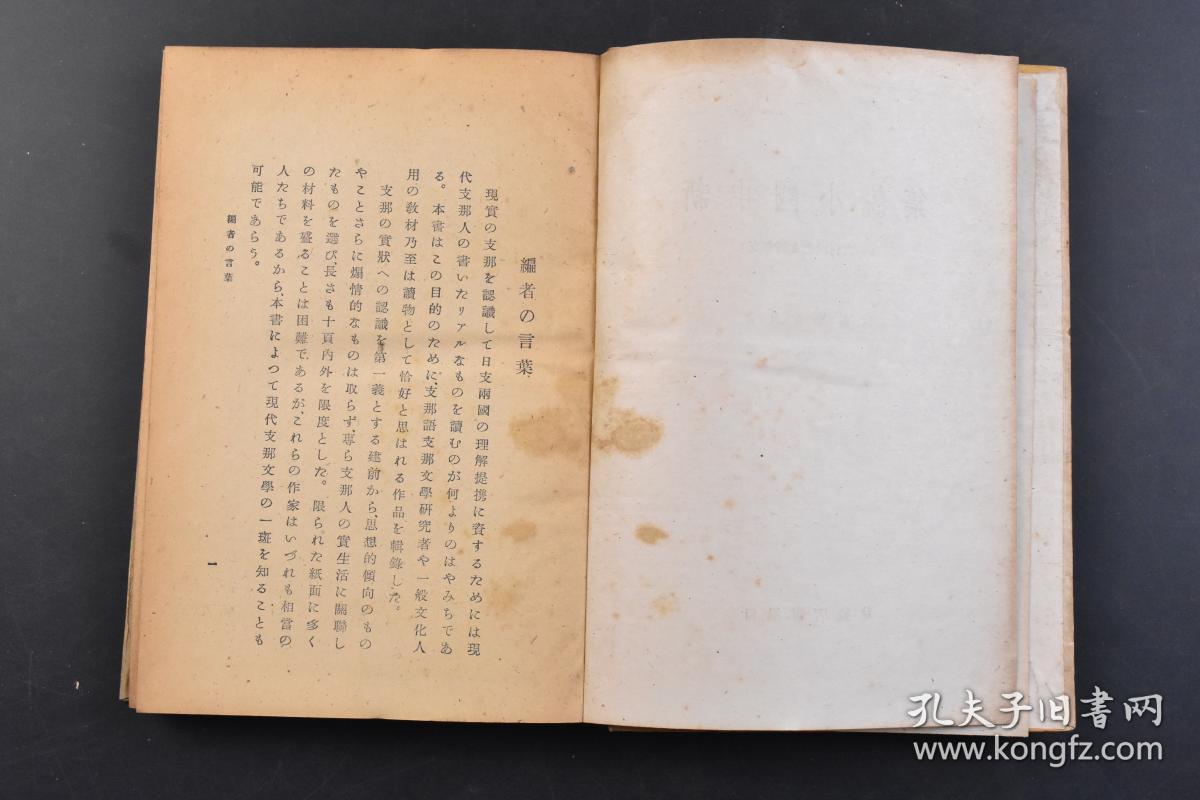 編者の言葉
現實の支那を認識して日支兩國の理解提携に資するためには現
代支那人の書いたリアルなものを讀むのが何よりのはやみちであ
る。本書はこの目的のために、支那語支那文學研究者や一般文化人
用の敎材乃至は讀物として恰好と思はれる作品を輯錄した。
支那の實狀への認識を第一義とする建前から、思想的傾向のもの
やことさらに煽情的なものは取らず、專ら支那人の實生活に關聯し
たものを選び、長さも十頁内外を限度とした。限られた紙面に多く
の材料を盛ることは困難であるが、これらの作家はいづれも相當の
人たちであるから、本書によつて現代支那文學の一斑を知ることも
可能であらう。
編者の言葉
一
孔夫子旧书网
www.kongfz.com